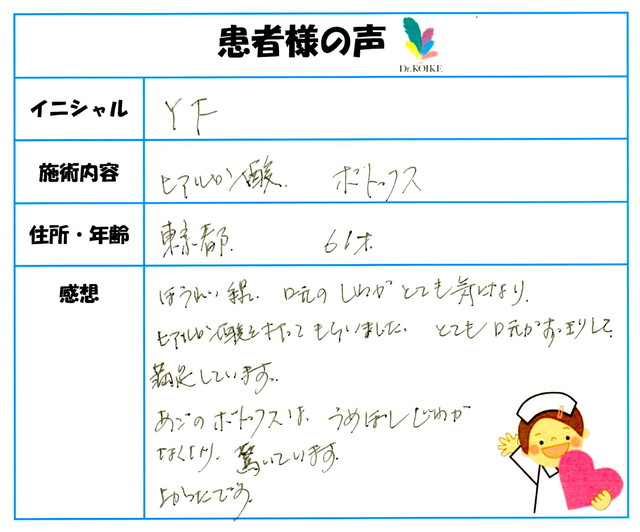 患者様の声
Dr.KOIKE
イニシャル YF
施術内容 ヒアルロン酸. ボトックス
住所・年齢 東京都. 61才.
感想 ほうれい線、口元のしわがとても気になり.
ヒアルロン酸をうってもらいました. とても口元がすっきりして.
満足しています.
あごのボトックスは、うめぼしじわが
なくなり、驚いています.
よかったです.